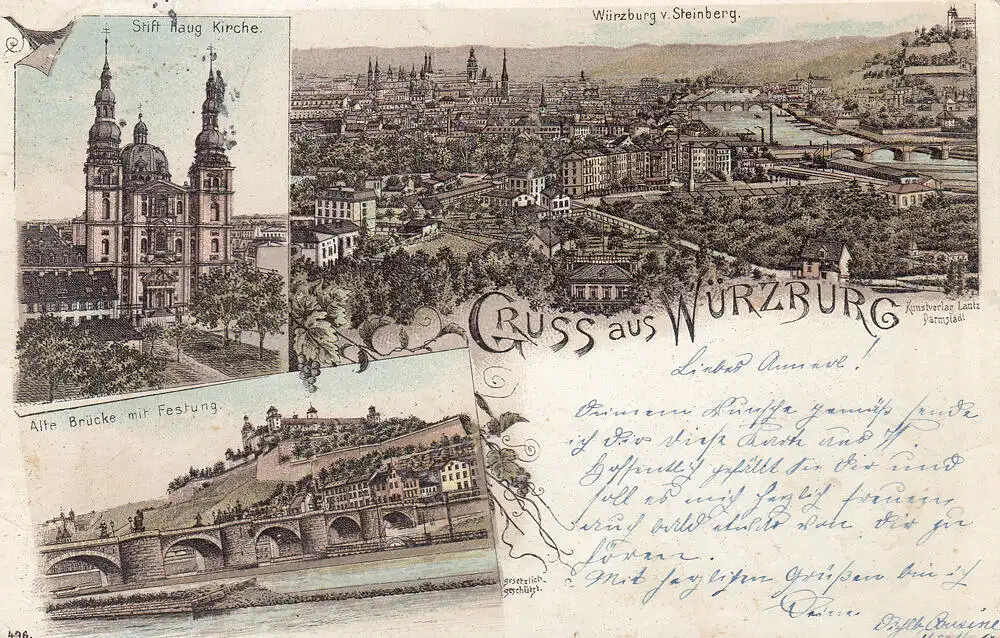 Stift Haug Kirche.
Würzburg v. Steinberg.
Kunstverlag Lautz
Darmstadt
GRUSS aus WÜRZBURG
Liebes Annerl!
Deinem Wunsche gemäß sende
ich Dir diese Karte aus W.
Hoffentlich gefällt sie Dir und
soll es mich herzlich freuen,
auch bald etwas von Dir zu
hören.
Mit herzlichen Grüßen bin ich
Deine
Cousine
Alte Brücke mit Festung.
gesetzlich
geschützt.
496.